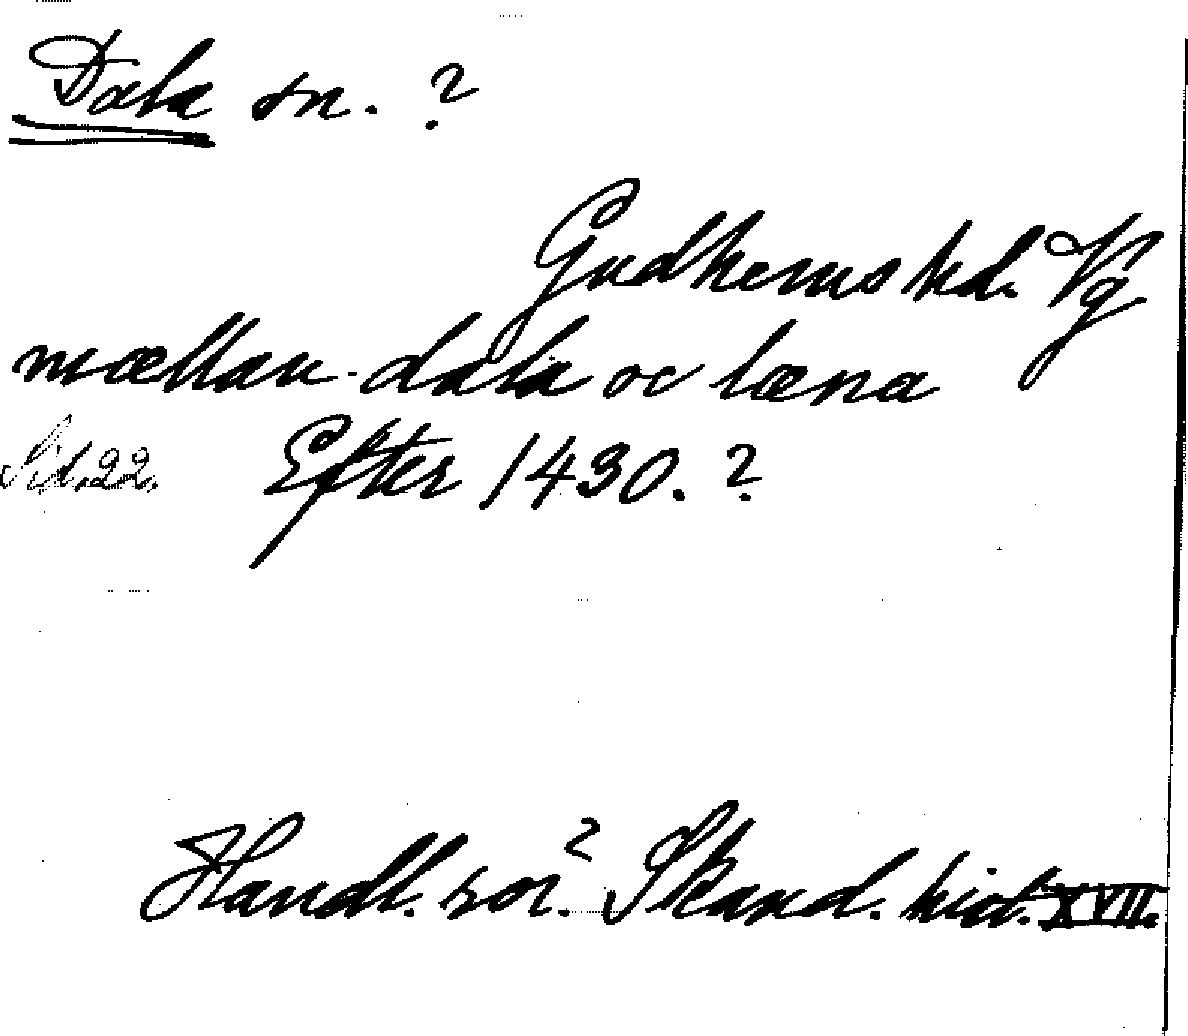 Dala sn. ?
Gudhems hd. Vg
mællan dala oc læna
Sid. 22. Efter 1430. ?
Handl. rör.? Skand. hist. XVII.